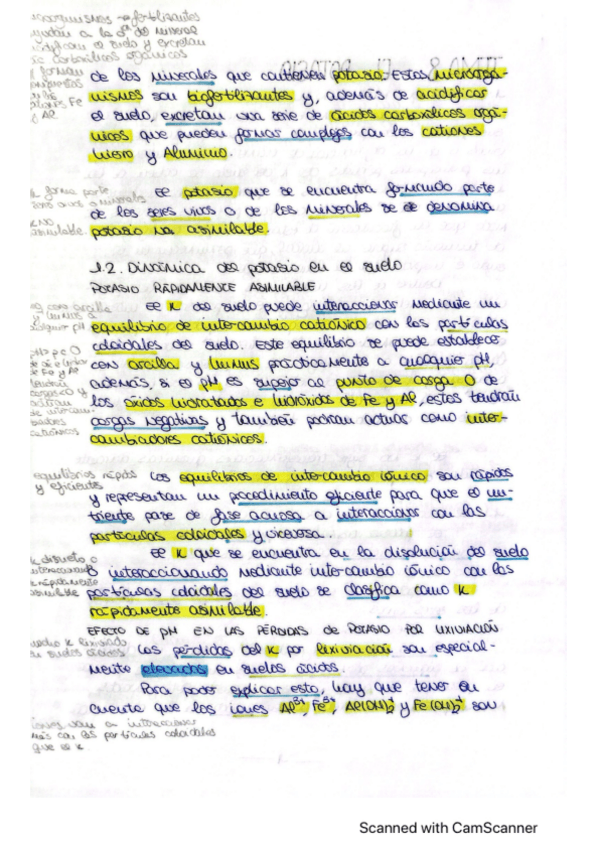 microorganismos → fertilizantes
ayudan a la
modifican el suelo y excretan
ác carboxílicos orgánicos
forman
Fe
y Al
de los minerales que contienen potasio. Estos microorga-
nismos son biofertilizantes y, además de acidificar
el suelo, excretan una serie de ácidos carboxílicos orgá-
nicos que pueden formar complejos con los cationes
hierro y Aluminio.
K forma parte
seres vivos o minerales
K NO
asimilable
El potasio que se encuentra formando parte
de los seres vivos o de los minerales se denomina
potasio no asimilable.
1.2. Dinámica del potasio en el suelo
POTASIO RÁPIDAMENTE ASIMILABLE
El K del suelo puede interaccionar mediante un
equilibrio de intercambio catiónico con las partículas
coloidales del suelo. Este equilibrio se puede establecer
con arcilla y humus prácticamente a cualquier pH,
además, si el pH es superior al punto de carga 0 de
los óxidos hidratados e hidróxidos de Fe y Al, estos tendrán
cargas negativas y también podrán actuar como inter-
cambiadores catiónicos.
con arcilla
y humus a
cualquier pH
pH > p c 0
de Fe y Al
tendrán
cargas ⊖ y
actúan
de intercam-
biadores
catiónicos
equilibrios rápids
y eficientes
Los equilibrios de intercambio iónico son rápidos
y representan un procedimiento eficiente para que el nu-
triente pase de fase acuosa a interaccionar con las
partículas coloidales y viceversa.
El K que se encuentra en la disolución del suelo
o interaccionando mediante intercambio iónico con las
partículas coloidales del suelo se clasifica como K
rápidamente asimilable.
K disuelto o
interaccionando
K rápidamente
asimilable
EFECTO DE pH EN LAS PÉRDIDAS DE POTASIO POR LIXIVIACIÓN
Las pérdidas del K por lixiviación son especial-
mente elevadas en suelos ácidos.
mucho K lixiviado
en suelos ácidos
Para poder explicar esto, hay que tener en
cuenta que los iones Al³⁺, Fe³⁺, Al(OH)₂⁺ y Fe(OH)₂⁺ son
iones van a interaccionar
más con las partículas coloidales
que el K
Scanned with CamScanner